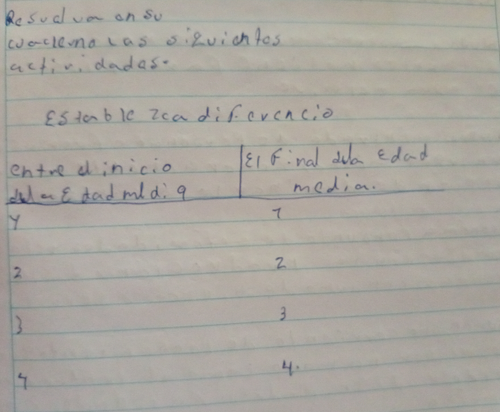 Resuelva en su
cuaderno las siguientes
actividades.
Establezca diferencia
entre el inicio
de la Edad media
El Final dela Edad
media.
1 1
2 2
3 3
4 4.